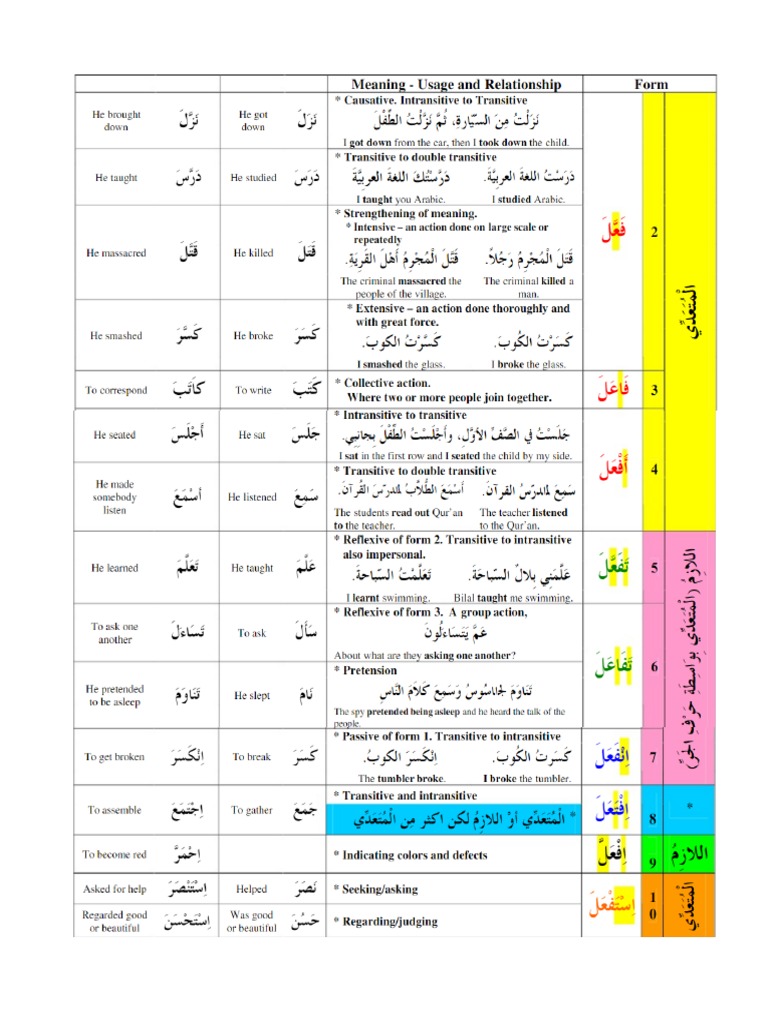 Meaning - Usage and Relationship Form
He brought down نَزَّلَ He got down نَزَلَ
* Causative. Intransitive to Transitive
نَزَلْتُ مِنَ السَّيَّارةِ، ثُمَّ نَزَّلْتُ الطِّفْلَ
I got down from the car, then I took down the child.
فَعَّلَ 2 الْمُتَعَدِّي
He taught دَرَّسَ He studied دَرَسَ
* Transitive to double transitive
دَرَسْتُ اللغةَ العربِيَّةَ. دَرَّسْتُكَ اللغةَ العربِيَّةَ
I taught you Arabic. I studied Arabic.
He massacred قَتَّلَ He killed قَتَلَ
* Strengthening of meaning.
* Intensive – an action done on large scale or
repeatedly
قَتَلَ الْمُجْرِمُ رَجُلاً. قَتَّلَ الْمُجْرِمُ أَهْلَ القَريَةِ.
The criminal massacred the The criminal killed a
people of the village. man.
He smashed كَسَّرَ He broke كَسَرَ
* Extensive – an action done thoroughly and
with great force.
كَسَرْتُ الكُوبَ. كَسَّرْتُ الكُوبَ.
I smashed the glass. I broke the glass.
To correspond كَاتَبَ To write كَتَبَ
* Collective action.
Where two or more people join together.
فَاعَلَ 3
He seated أَجْلَسَ He sat جَلَسَ
* Intransitive to transitive
جَلَسْتُ فِي الصَّفِّ الأوَّلِ، وأَجْلَسْتُ الطِّفْلَ بِجَانِبِي.
I sat in the first row and I seated the child by my side.
أَفْعَلَ 4
He made
somebody
listen أَسْمَعَ He listened سَمِعَ
* Transitive to double transitive
سَمِعَ المدرّسُ القرآنَ. أَسْمَعَ الطُّلاَّبُ المدرّسَ القُرآنَ.
The students read out Qur'an The teacher listened
to the teacher. to the Qur'an.
He learned تَعَلَّمَ He taught عَلَّمَ
* Reflexive of form 2. Transitive to intransitive
also impersonal.
عَلَّمَنِي بِلالٌ السِّبَاحَةَ. تَعَلَّمْتُ السِّبَاحةَ.
I learnt swimming. Bilal taught me swimming.
تَفَعَّلَ 5 اللازِمُ (الْمُتَعَدِّي بِوَاسِطَةِ حَرْفِ الْجَرِّ)
To ask one
another تَسَاءَلَ To ask سَأَلَ
* Reflexive of form 3. A group action,
عَمَّ يَتَسَاءَلُونَ
About what are they asking one another?
تَفَاعَلَ 6
He pretended
to be asleep تَنَاوَمَ He slept نَامَ
* Pretension
تَنَاوَمَ الجَاسُوسُ وَسَمِعَ كَلاَمَ النَّاسِ
The spy pretended being asleep and he heard the talk of the
people.
To get broken اِنْكَسَرَ To break كَسَرَ
* Passive of form 1. Transitive to intransitive
كَسَرتُ الكُوبَ. اِنْكَسَرَ الكوبُ.
The tumbler broke. I broke the tumbler.
اِنْفَعَلَ 7
To assemble اِجْتَمَعَ To gather جَمَعَ
* Transitive and intransitive
* الْمُتَعَدِّي أوْ اللازِمُ لكن اكثر مِن الْمُتَعَدِّي
اِفْتَعَلَ 8 *
To become red اِحْمَرَّ
* Indicating colors and defects
اِفْعَلَّ 9 اللازِمُ
Asked for help اِسْتَنْصَرَ Helped نَصَرَ
* Seeking/asking
اِسْتَفْعَلَ 10 الْمُتَعَدِّي
Regarded good
or beautiful اِسْتَحْسَنَ Was good
or beautiful حَسُنَ
* Regarding/judging